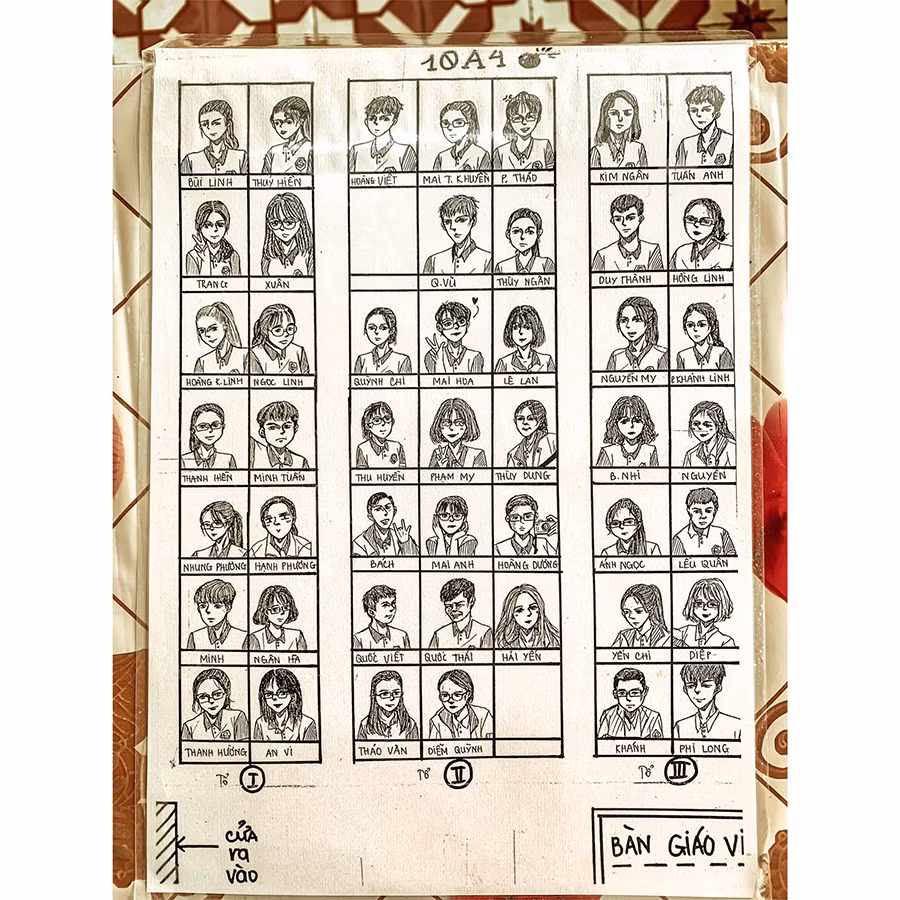 10A4
BÙI LINH THUÝ HIỀN HOÀNG VIỆT MAI T. KHUYÊN P. THẢO KIM NGÂN TUẤN ANH
TRANG XUÂN Q.VŨ THÙY NGÂN DUY THÀNH HỒNG LINH
HOÀNG K.LINH NGỌC LINH QUỲNH CHI MAI HOA LÊ LAN NGUYỄN MY KHÁNH LINH
THANH HIỀN MINH TUẤN THU HUYỀN PHẠM MY THÙY DUNG B. NHI NGUYÊN
NHUNG PHƯƠNG HẠNH PHƯƠNG BÁCH MAI ANH HOÀNG DƯƠNG ÁNH NGỌC LÊU QUÂN
MINH NGÂN HÀ QUỐC VIỆT QUỐC THÁI HẢI YẾN YẾN CHI DIỆP
THANH HƯƠNG AN VI THẢO VÂN DIỄM QUỲNH KHÁNH PHI LONG
Tổ I Tổ II Tổ III
CỬA
RA
VÀO
BÀN GIÁO VI